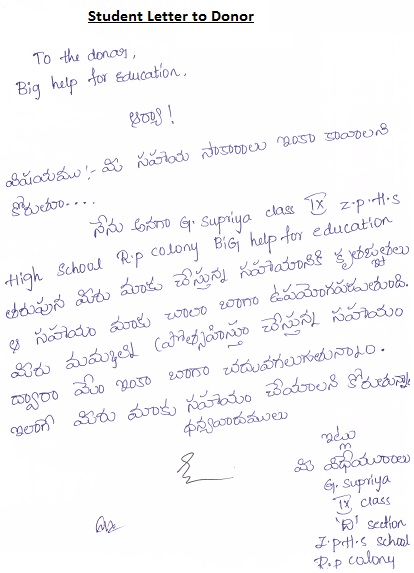 Student Letter to Donor
To the donar,
Big help for Education,
ఆర్యా!
విషయము :- మీ సహాయ సాకారాలు ఇంకా కావాలని
కోరుతూ....
నేను అనగా G. Supriya class IX Z.P.H.S
High School R.P colony BiG help for education
తరుపున మీరు మాకు చేస్తున్న సహాయానికి కృతజ్ఞతలు
ఆ సహాయం మాకు చాలా బాగా ఉపయోగపడుతుంది.
మీరు మమ్మల్ని ప్రోత్సహిస్తూ చేస్తున్న సహాయం
ద్వారా మేం ఇంకా బాగా చదువగలుగుతున్నాం.
ఇలాగే మీరు మాకు సహాయం చేయాలని కోరుతున్నా
ధన్యవాదములు
ఇట్లు
మీ విధేయురాలు
G. Supriya
IX class
section
Z.P.H.S school
R.P colony